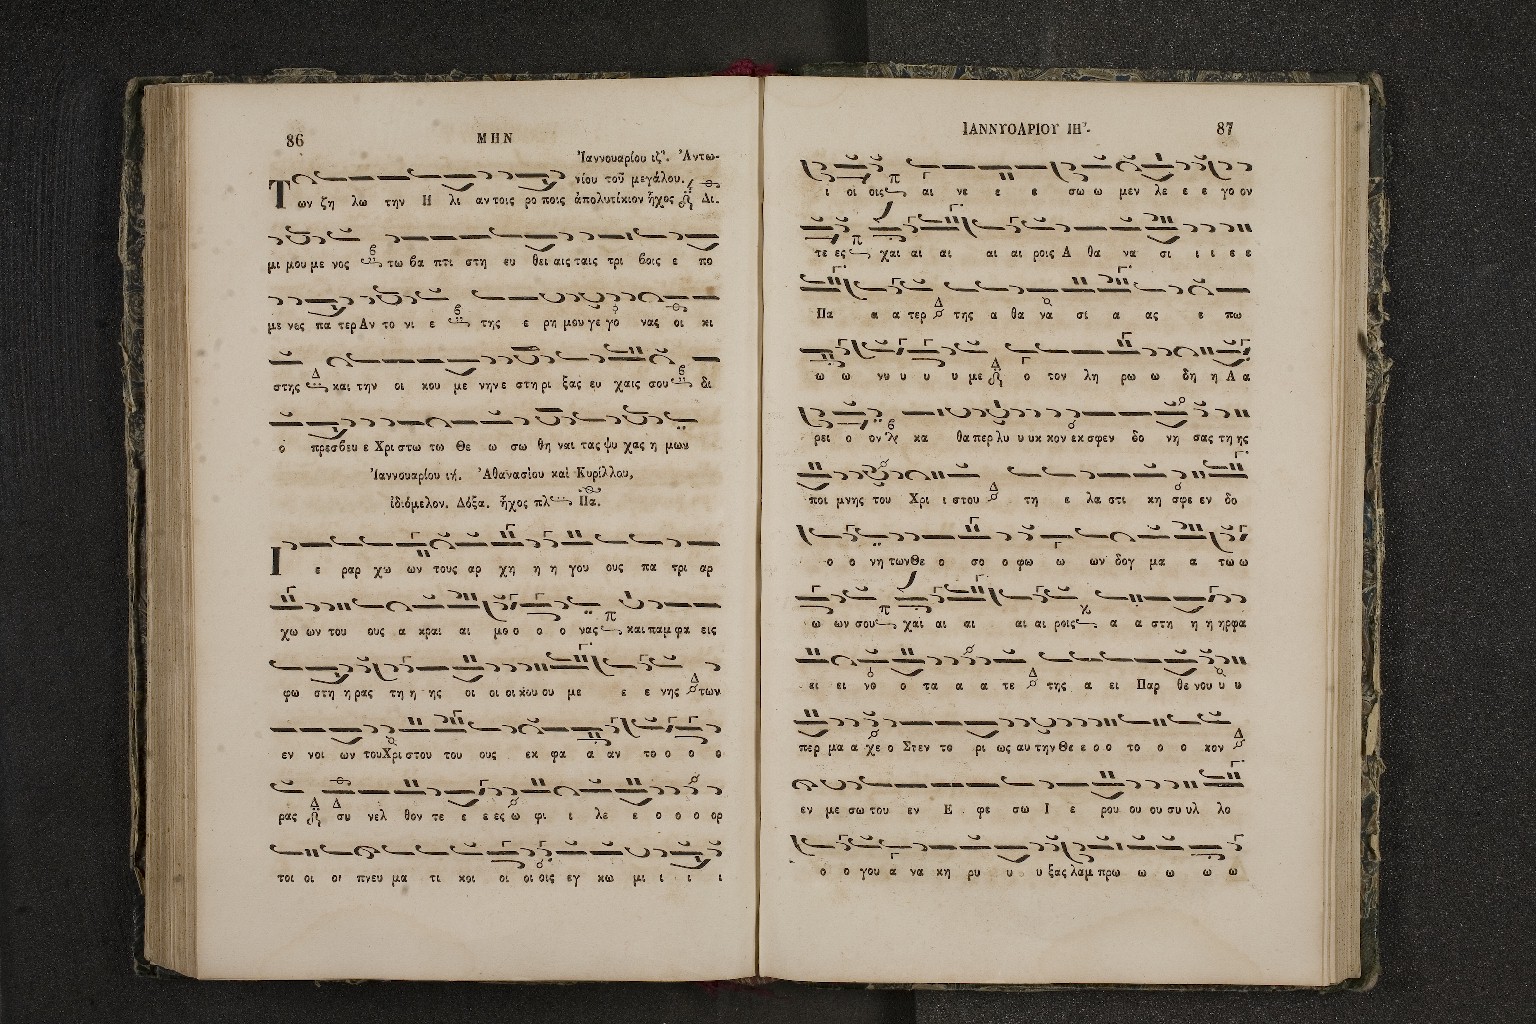 86 ΜΗΝ
Ἰαννουαρίου ιζ'. Ἀντω-
νίου τοῦ μεγάλου.
Των ζη λω την Η λι αν τοις ρο ποις ἀπολυτίκιον ἦχος Δι.
μι μου με νος τω βα πτι στη ευ θει αις ταις τρι βοις ε πο
με νες πα τερ Αν το νι ε της ε ρη μου γε γο νας οι κι
στης και την οι κου με νην ε στη ρι ξας ευ χαις σου δι
ο πρεσβευ ε Χρι στω τω Θε ω σω θη ναι τας ψυ χας η μων
Ἰαννουαρίου ιή. Ἀθανασίου καὶ Κυρίλλου,
ἰδιόμελον. Δόξα. ἦχος πλ Πα.
Ι ε ραρ χω ων τους αρ χη η η γου ους πα τρι αρ
χω ων του ους α κραι αι μο ο ο ο νας π και παμ φα εις
φω στη η ρας τη η ης οι οι οι κου ου με ε ε νης Δ των
εν νοι ων του Χρι στου του ους εκ φα α αν το ο ο ο
ρας Δ Δ συ νελ θον τε ε ε ες ω φι ι λε ε ο ο ο ορ
τοι οι οι πνευ μα τι κοι οι οι οις εγ κω μι ι ι ι
ΙΑΝΝΥΟΑΡΙΟΥ ΙΗ'. 87
ι οι οις π αι νε ε ε σω ω μεν λε ε ε γο ον
τε ες π χαι αι αι αι αι ροις Α θα να σι ι ι ε ε
Πα α α τερ Δ της α θα να σί α ας ε πω
ω ω νυ υ υ υ με Δ ο τον λη ρω ω δη η Α α
ρει ο ον κα θα περ λυ υ υκ κον εκ σφεν δο νη σας τη ης
ποι μνης του Χρι ι στου Δ τη ε λα στι κη σφε εν δο
ο ο νη των Θε ο σο ο φω ω ων δογ μα α τω ω
ω ων σου π χαί αι αι αι αι ροις α α στη η η ηρ φα
ει ει νο ο τα α α τε Δ της α ει Παρ θε νου υ υ
περ μα α χε ο Στεν το ρι ως αυ την Θε ε ο ο το ο ο κον Δ
εν με σω του εν Ε φε σω Ι ε ρου ου ου συ υλ λο
ο ο γου α να κη ρυ υ υ ξας λαμ πρω ω ω ω ω